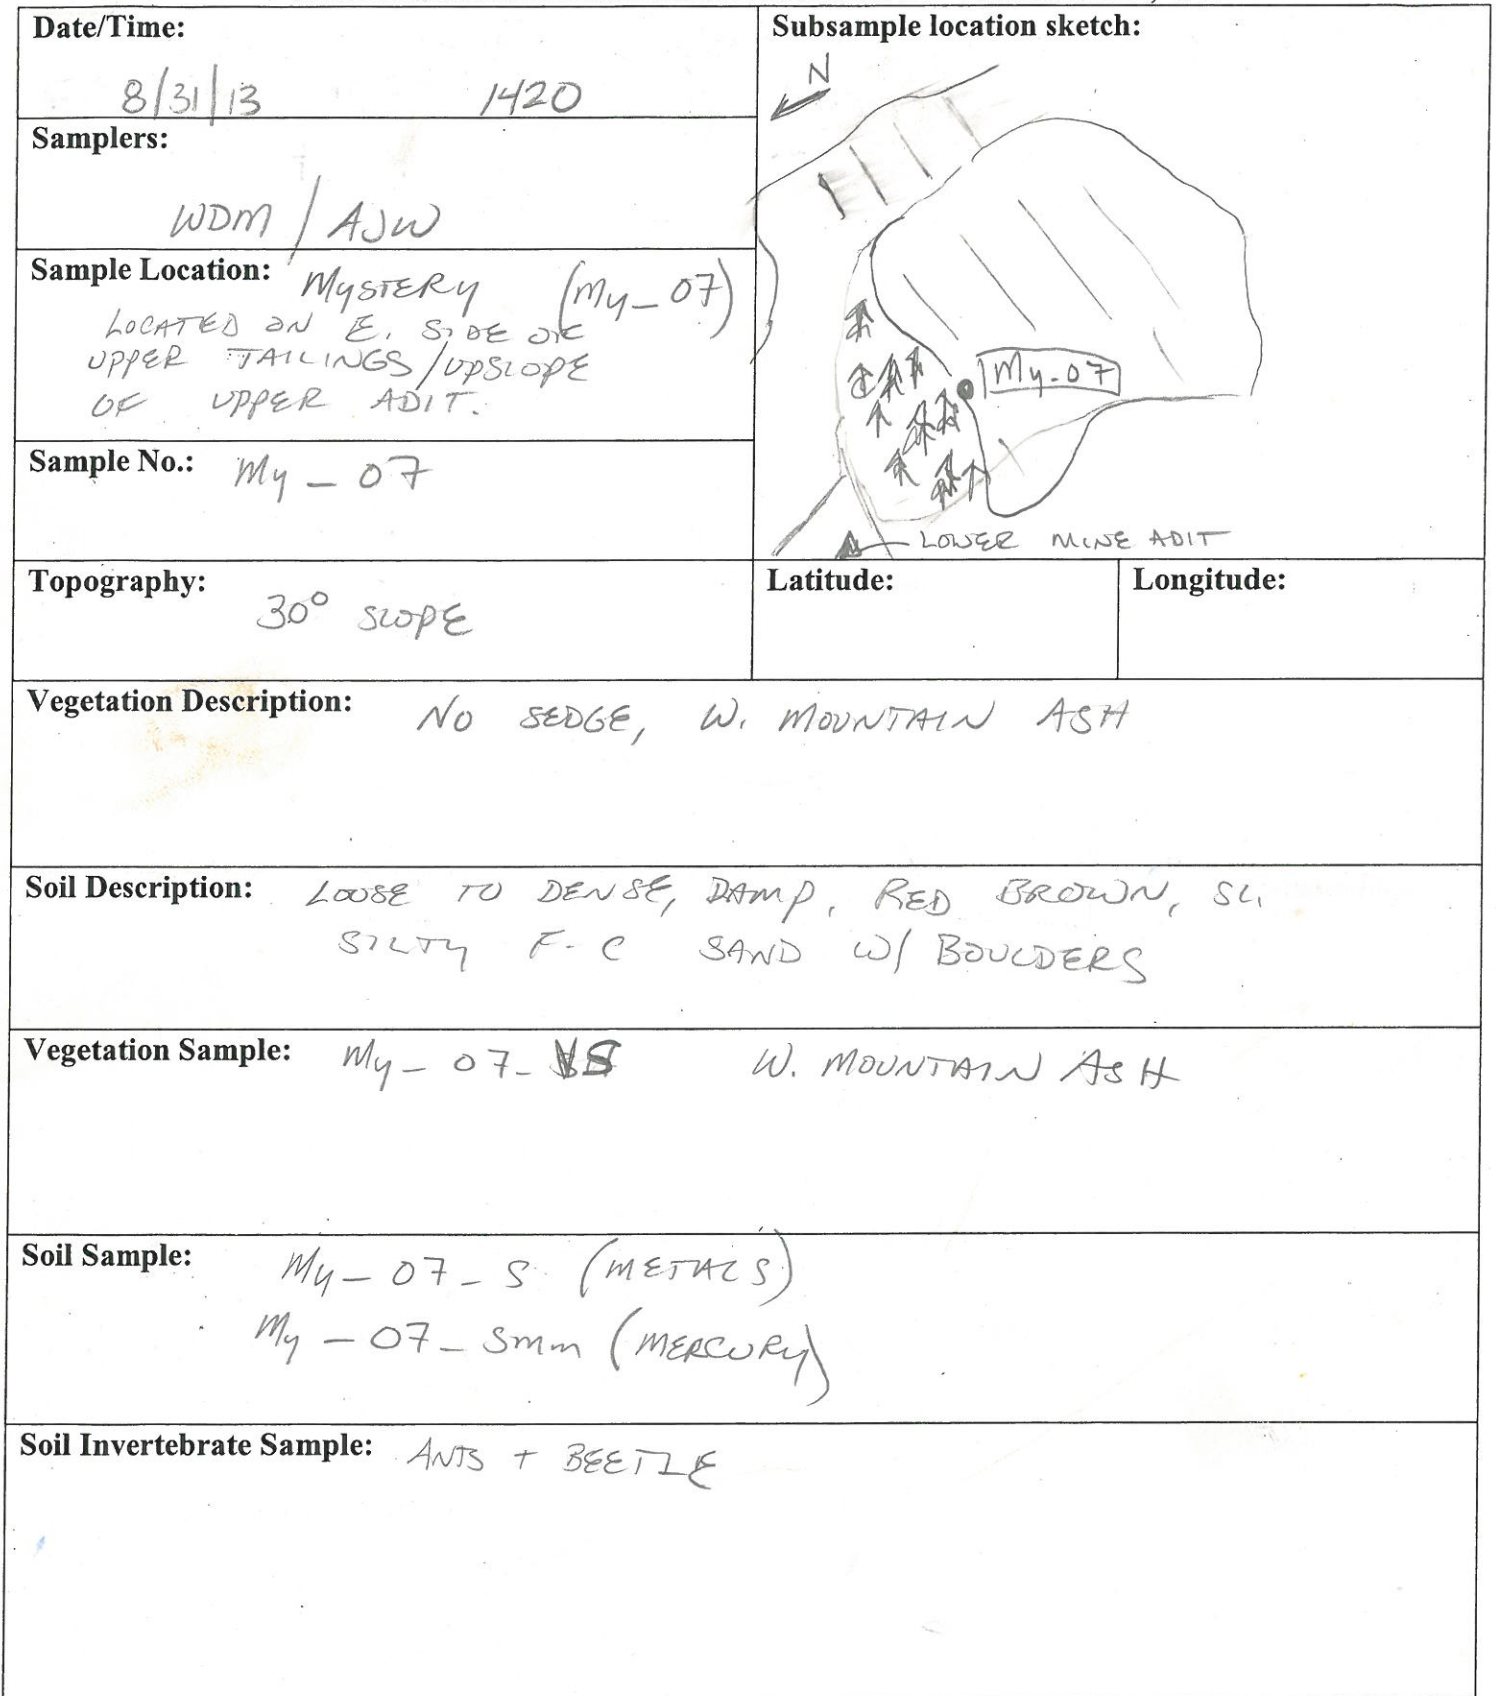 Date/Time:
8/31/13 1420
Samplers:
WDM / AJW
Sample Location: MYSTERY (My-07)
LOCATED ON E. SIDE OF
UPPER TAILINGS/UPSLOPE
OF UPPER ADIT.
Sample No.: My-07
Subsample location sketch:
N
My-07
LOWER MINE ADIT
Topography:
30° SLOPE
Latitude:
Longitude:
Vegetation Description: NO SEDGE, W. MOUNTAIN ASH
Soil Description: LOOSE TO DENSE, DAMP, RED BROWN, SL.
SILTY F-C SAND W/ BOULDERS
Vegetation Sample: My-07-VS W. MOUNTAIN ASH
Soil Sample: My-07-S (METALS)
My-07-Smm (MERCURY)
Soil Invertebrate Sample: ANTS + BEETLE